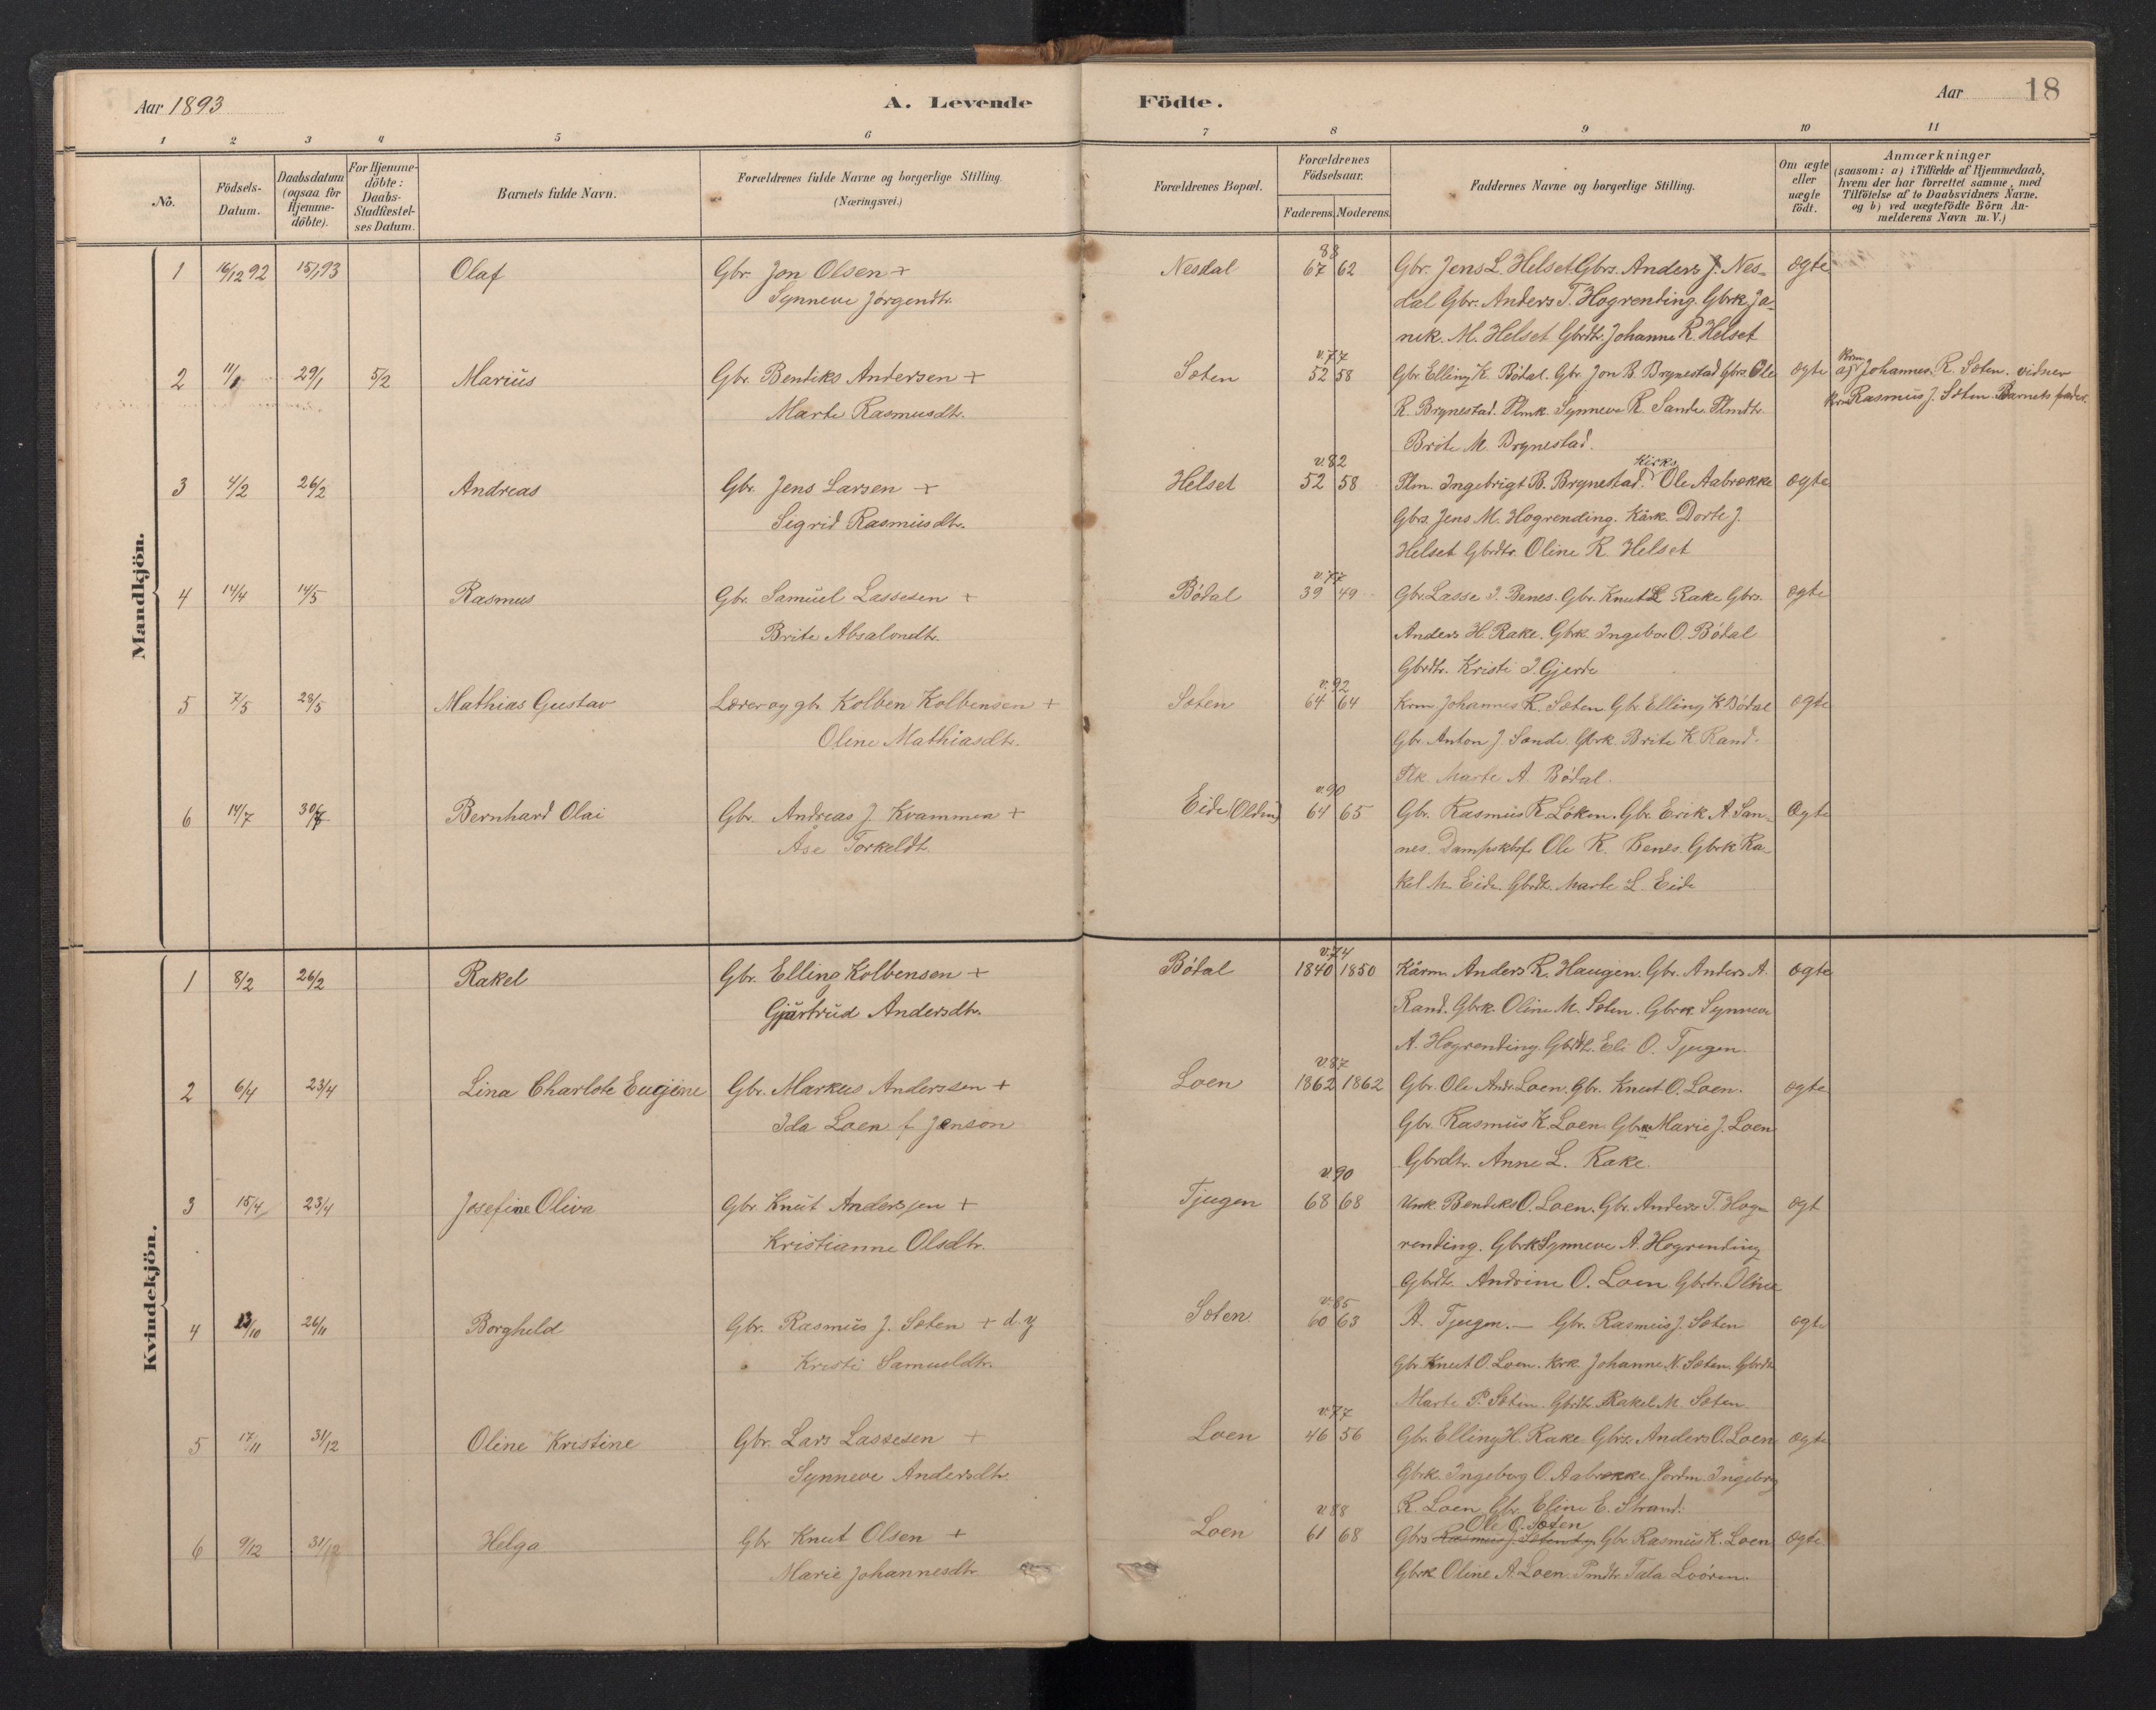 Aar 1893
A. Levende Födte.
Aar 18
1 2 3 4 5 6 7 8 9 10 11
No.
Födsels-Datum.
Daabsdatum (ogsaa for Hjemme-döbte).
For Hjemme-döbte: Daabs-Stadfæstel-ses Datum.
Barnets fulde Navn.
Forældrenes fulde Navne og borgerlige Stilling.
(Næringsvei.)
Forældrenes Bopæl.
Forældrenes Födselsaar.
Faderens. Moderens.
Faddernes Navne og borgerlige Stilling.
Om ægte eller uægte födt.
Anmærkninger
(saasom: a) i Tilfælde af Hjemmedaab,
hvem der har forrettet samme, med
Tilföielse af to Daabsvidners Navne,
og b) ved uægtefödte Börn An-
melderens Navn m. V.)
Mandkjön.
88
1 16/12 92 15/1 93 Olaf Gbr. Jon Olsen + Nesdal 67 62 Gbr. Jens L. Helset Gbrs. Anders J. Nes- ægte
Synneve Jörgendtr. dal Gbr. Anders T. Hogrending. Gbrk. Ja-
nik. M. Helset Gbrdtr. Johanne R. Helset
v. 77
2 11/1 29/1 5/2 Marius Gbr. Bentiks Andersen + Sæten 52 58 Gbr. Elling K. Bödal. Gbr. Jon B. Brynestad Gbrs. Ole ægte af Krm Johannes R. Sæten. vidner
Marte Rasmusdtr. R. Brynestad. Plmk. Synneve R. Sande. Plmdtr. Krm Rasmus J. Sæten. Barnets fader.
Brite M. Brynestad.
v. 82
3 4/2 26/2 Andreas Gbr. Jens Larsen + Helset 52 58 Plm. Ingebrigt B. Brynestad. Kirks Ole Aabrekke ægte
Sigrid Rasmusdtr. Gbrs. Jens M. Hogrending. Kårk. Dorte J.
Helset Gbrdtr. Oline R. Helset
v. 77
4 14/4 14/5 Rasmus Gbr. Samuel Lassesen + Bödal 39 49 Gbr. Lasse I. Benes. Gbr. Knut L. Rake Gbrs. ægte
Brite Absalondtr. Anders H. Rake. Gbrk. Ingebor O. Bödal
Gbrdtr. Kristi I. Gjerde
v. 92
5 7/5 28/5 Mathias Gustav Lærer og gbr. Kolben Kolbensen + Sæten 64 64 Krm Johannes R. Sæten Gbr. Elling K Bödal ægte
Oline Mathiasdtr. Gbr. Anton J. Sande. Gbrk. Brite K. Rand.
Plk. Marte A. Bödal.
v. 90
6 14/7 30/7 Bernhard Olai Gbr. Andreas J. Kvammen + Eide (Olden) 64 65 Gbr. Rasmus R. Löken. Gbr. Erik A. San- ægte
Åse Torkeldtr. nes. Ole R. Benes. Gbrk Ra-
kel M. Eide. Gbrdtr. Marte L. Eide
Kvindekjön.
v. 74
1 8/2 26/2 Rakel Gbr. Elling Kolbensen + Bödal 1840 1850 Kårm. Anders R. Haugen. Gbr. Anders A. ægte
Gjertrud Andersdtr. Rand. Gbrk. Oline M. Sæten. Gbrk. Synneve
A. Hogrending. Gbrdtr. Eli O. Tjugen.
v. 87
2 6/4 23/4 Lina Charlote Eugine Gbr. Markus Anderssen + Loen 1862 1862 Gbr. Ole Andr. Loen. Gbr. Knut O. Loen. ægte
Ida Loen f. Jenson Gbr. Rasmus K. Loen Gbrk Marie J. Loen
Gbrdtr. Anne L. Rake.
v. 90
3 15/4 23/4 Josefine Oliva Gbr. Knut Anderssen + Tjugen 68 68 Umk. Bendiks O. Loen. Gbr. Anders T. Hog- ægt
Kristianne Olsdtr. rending. Gbrk Synneve A. Hogrending
Gbrdtr. Andrine O. Loen. Gbrdtr. Oline
v. 85
4 13/10 26/11 Borghild Gbr. Rasmus J. Sæten + d. y Sæten. 60 63 A. Tjugen. — Gbr. Rasmus J. Sæten ægte
Kristi Samueldtr. Gbr. Knut O. Loen. Krk. Johanne N. Sæten. Gbrdtr.
Marte P. Sæten. Gbrdtr. Rakel M. Sæten.
v. 77
5 17/11 31/12 Oline Kristine Gbr. Lars Lassesen + Loen 46 56 Gbr. Elling H. Rake. Gbrs. Anders O. Loen ægte
Synneve Andersdtr. Gbrk. Ingeborg O. Aabrekke. Jordm. Ingeborg
R. Loen. Gbr. Eline E. Strand.
v. 88 Ole O. Sæten
6 9/12 31/12 Helga Gbr. Knut Olsen + Loen 61 68 Gbrs Rasmus J. Sæten d.y. Gbr. Rasmus K. Loen ægte.
Marie Johannesdtr. Gbrk Oline A. Loen. Tala